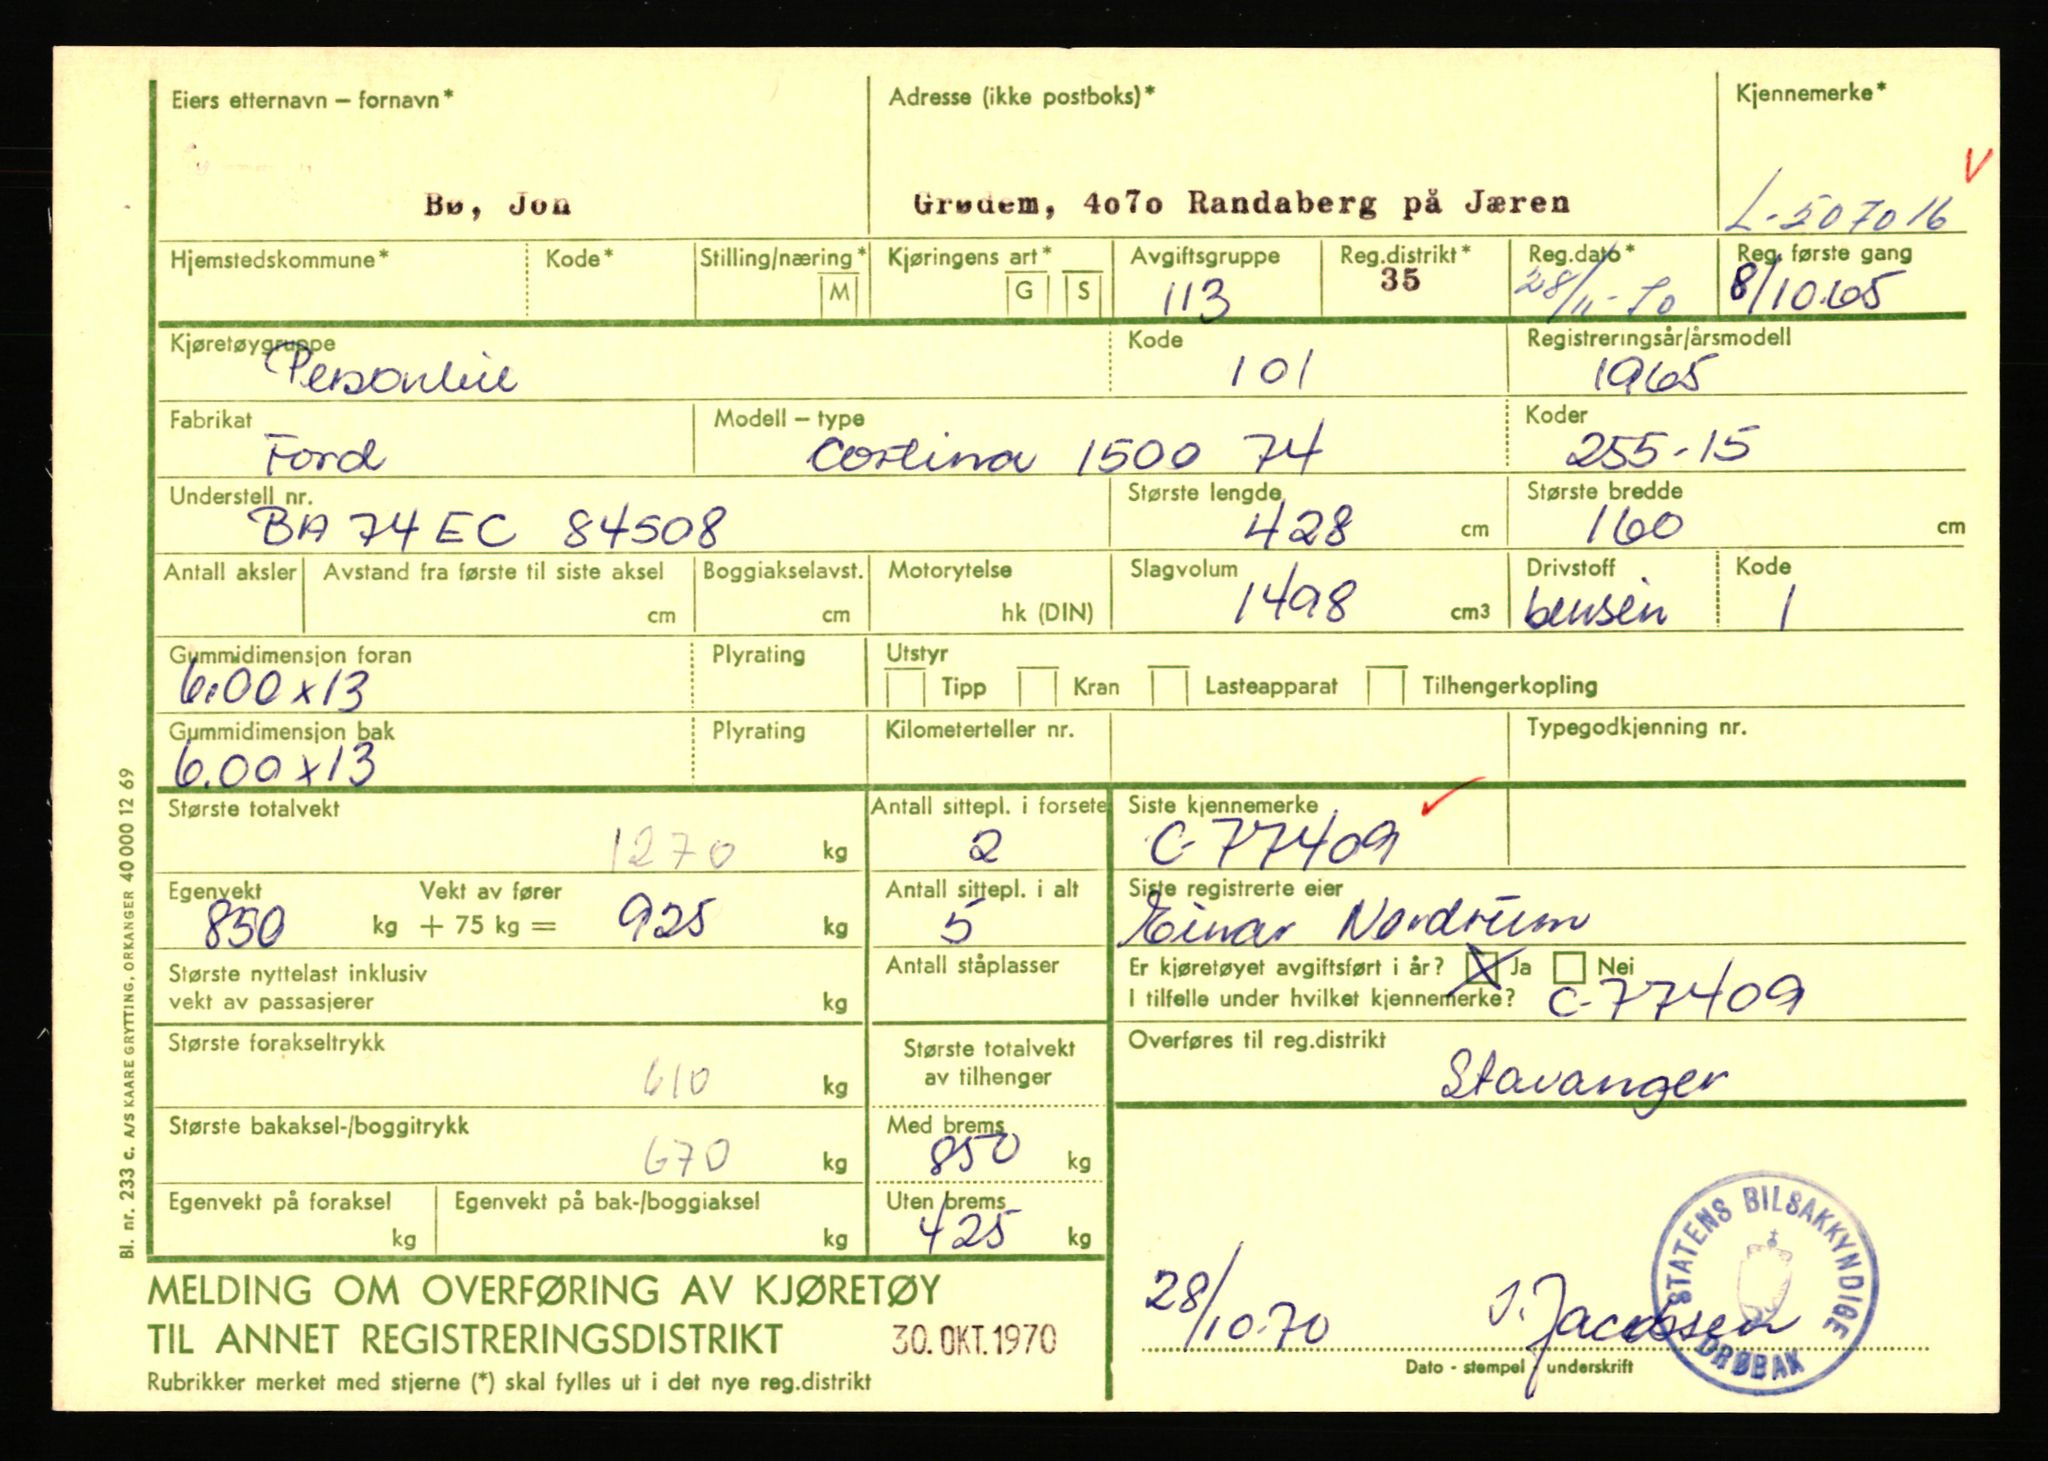 Eiers etternavn – fornavn*
Adresse (ikke postboks)*
Kjennemerke*
V
Bø, Jon
Grødem, 4070 Randaberg på Jæren
L-507016
Hjemstedskommune*
Kode*
Stilling/næring*
M
Kjøringens art*
G
S
Avgiftsgruppe
113
Reg.distrikt*
35
Reg.dato*
28/11-70
Reg. første gang
8/10.65
Kjøretøygruppe
Personbil
Kode
101
Registreringsår/årsmodell
1965
Fabrikat
Ford
Modell – type
Cortina 1500 74
Koder
255-15
Understell nr.
BA 74 EC 84508
Største lengde
428 cm
Største bredde
160 cm
Antall aksler
Avstand fra første til siste aksel
cm
Boggiakselavst.
cm
Motorytelse
hk (DIN)
Slagvolum
1498 cm3
Drivstoff
bensin
Kode
1
Gummidimensjon foran
6.00 x 13
Plyrating
Utstyr
Tipp
Kran
Lasteapparat
Tilhengerkopling
Gummidimensjon bak
6.00 x 13
Plyrating
Kilometerteller nr.
Typegodkjenning nr.
Største totalvekt
1270 kg
Antall sittepl. i forsete
2
Siste kjennemerke
C-77409
Egenvekt
Vekt av fører
850 kg + 75 kg = 925 kg
Antall sittepl. i alt
5
Siste registrerte eier
Einar Nordrum
Største nyttelast inklusiv
vekt av passasjerer
kg
Antall ståplasser
Er kjøretøyet avgiftsført i år? X Ja Nei
I tilfelle under hvilket kjennemerke? C-77409
Største forakseltrykk
610 kg
Største totalvekt
av tilhenger
Overføres til reg.distrikt
Stavanger
Største bakaksel-/boggitrykk
670 kg
Med brems
850 kg
Egenvekt på foraksel
kg
Egenvekt på bak-/boggiaksel
kg
Uten brems
425 kg
MELDING OM OVERFØRING AV KJØRETØY
TIL ANNET REGISTRERINGSDISTRIKT
30. OKT. 1970
Rubrikker merket med stjerne (*) skal fylles ut i det nye reg.distrikt
28/10-70
Jacobsen
Dato - stempel - underskrift
STATENS BILSAKKYNDIGE
DRØBAK
Bl. nr. 233 c. A/S KAARE GRYTTING, ORKANGER 40 000 12 69